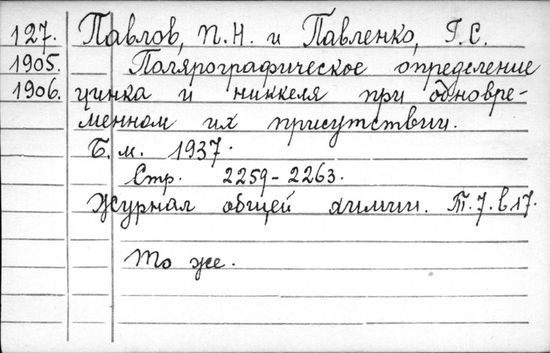 127. Павлов, П.Н. и Павленко, Г.С.
1905. Полярографическое определение
1906. цинка и никкеля при одновре-
менном их присутствии.
Б.м. 1937.
Стр. 2259-2263.
Журнал общей химии. Т.7.в17.
То же.